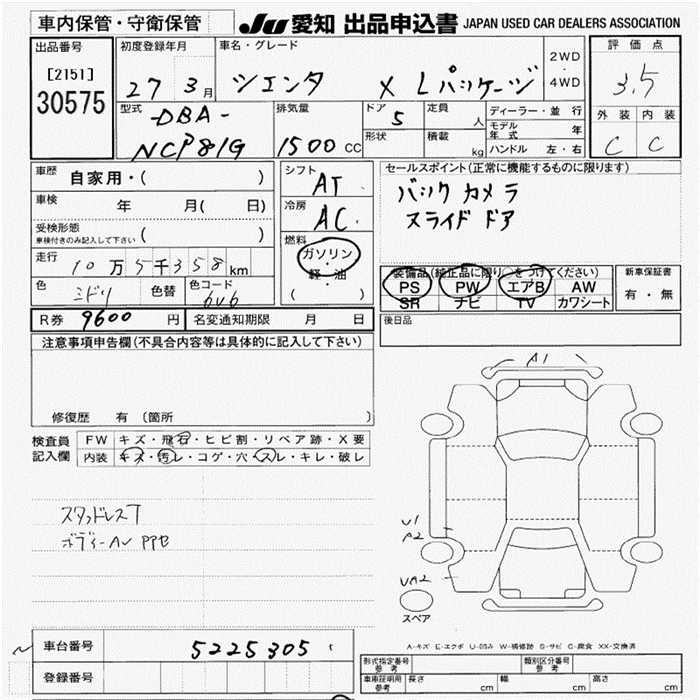 車内保管・守衛保管
JU 愛知 出品申込書 JAPAN USED CAR DEALERS ASSOCIATION
出品番号
[2151]
30575
初度登録年月
27 3月
車名・グレード
シエンタ X Lパッケージ
2WD
・
4WD
評価点
3.5
外装 内装
C C
型式
DBA-
NCP81G
排気量
1500 CC
ドア 5
形状
定員 人
積載 kg
ディーラー・並行
モデル年式 年
ハンドル 左・右
車歴 自家用・( )
車検 年 月( 日)
受検形態
車検付きのみ記入して下さい ( )
走行 10万5千358km
色 ミドリ 色替
色コード 6V6
シフト AT
冷房 AC
燃料
ガソリン
・
軽・油
( )
セールスポイント(正常に機能するものに限ります)
バックカメラ
スライドドア
装備品(純正品に限り○をつけてください)
PS PW エアB AW
SR ナビ TV カワシート
新車保証書
有・無
R券 9600 円
名変通知期限 月 日
後日品
注意事項申告欄(不具合内容等は具体的に記入して下さい)
修復歴 有 〔箇所 〕
検査員
記入欄
FW キズ・飛石・ヒビ割・リペア跡・X要
内装 キズ・汚レ・コゲ・穴・スレ・キレ・破レ
スタッドレスT
A1
U1
A2
UA2
スペア
A-キズ E-エクボ U-凹み W-補修跡 S-サビ C-腐食 XX-交換済
車台番号 5225305
登録番号
形式指定番号
参考
類別区分番号
参考
車庫証明用
参考
長さ cm
幅 cm
高さ cm